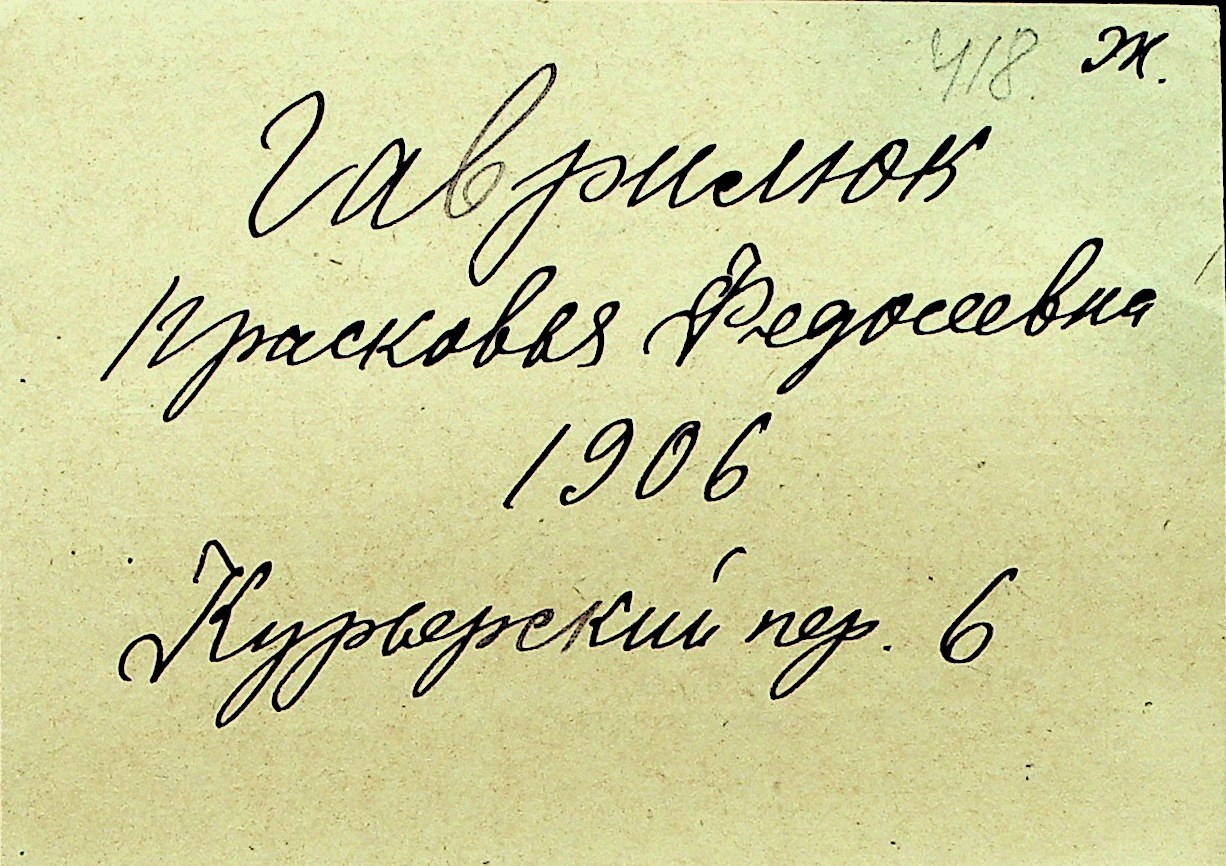 418. Ж.
Гаврилюк
Прасковья Федосеевна
1906
Курьерский пер. 6